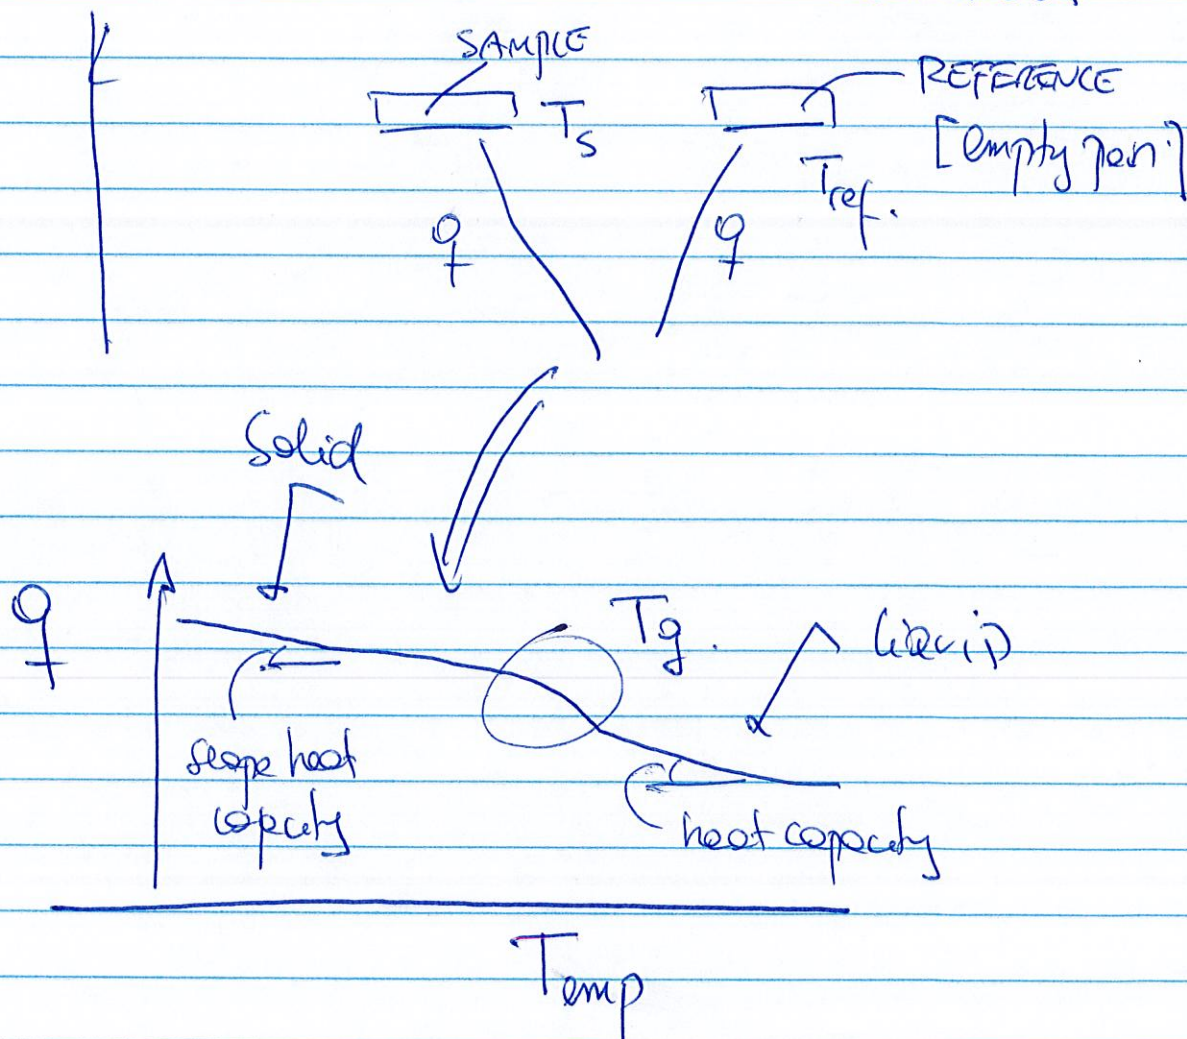 SAMPLE
REFERENCE
Ts
[empty pan]
Tref.
q
q
Solid
q
Tg.
liquid
slope heat
capacity
heat capacity
Temp